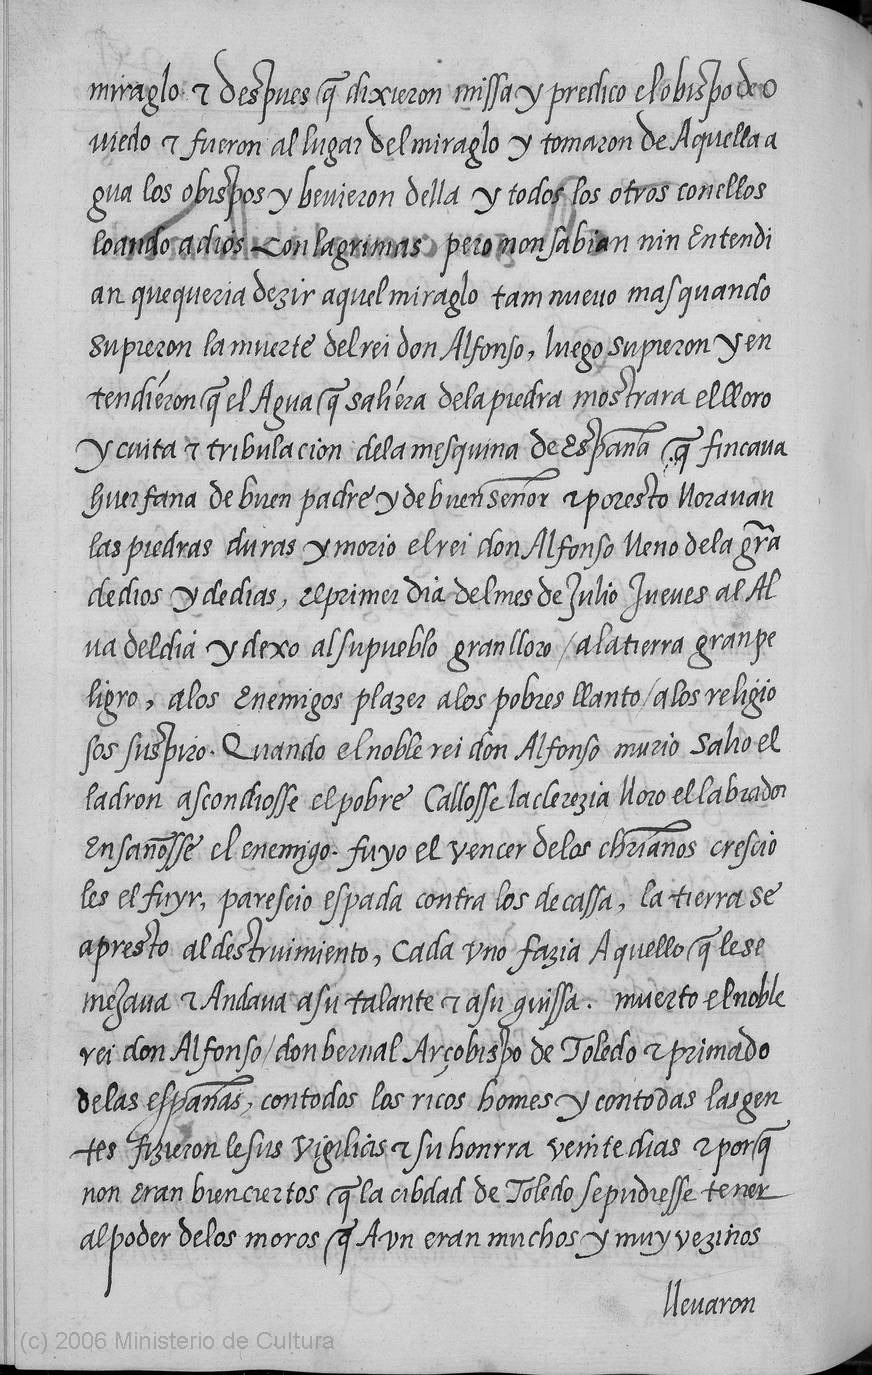 miraglo τ despues q̃ dixieron missa y predico el obispo de o
uiedo τ fueron al lugar del miraglo y tomaron de Aquella a
gua los obispos y beuieron della y todos los otros con ellos
loando a dios con lagrimas pero non sabian nin Entendi
an que queria dezir aquel miraglo tam nueuo mas quando
supieron la muerte del rei don Alfonso, luego supieron y en
tendiéron q̃ el Agua q̃ saliéra dela piedra mostrara el lloro
y cuita τ tribulacion dela mesquina de España q̃ fincaua
huerfana de buen padre y de buen señor τ por esto llorauan
las piedras duras y morio el rei don Alfonso lleno dela gr̃a
de dios y de dias, El primer dia del mes de Julio Jueves al Al
ua del dia y dexo al su pueblo gran lloro / a la tierra gran pe
ligro, alos Enemigos plazer alos pobres llanto / alos religio
sos suspiro. Quando el noble rei don Alfonso murio Salio el
ladron ascondiosse el pobre Callosse la clerezia lloro el labrador
Ensañosse el enemigo. fuyo el vencer delos chr̃ianos crescio
les el fuyr, parescio espada contra los de cassa, la tierra se
apresto al destruimiento, Cada vno fazia Aquello q̃ le se
mejaua τ Andaua a su talante τ a su guissa. muerto el noble
rei don Alfonso / don bernal Arçobispo de Toledo τ primado
delas españas, con todos los ricos homes y con todas las gen
tes fizieron le sus vigilias τ su honrra veinte dias τ por q̃
non Eran bien ciertos q̃ la cibdad de Toledo se pudiesse tener
al poder delos moros q̃ Avn eran muchos y muy vezinos
lleuaron
(c) 2006 Ministerio de Cultura